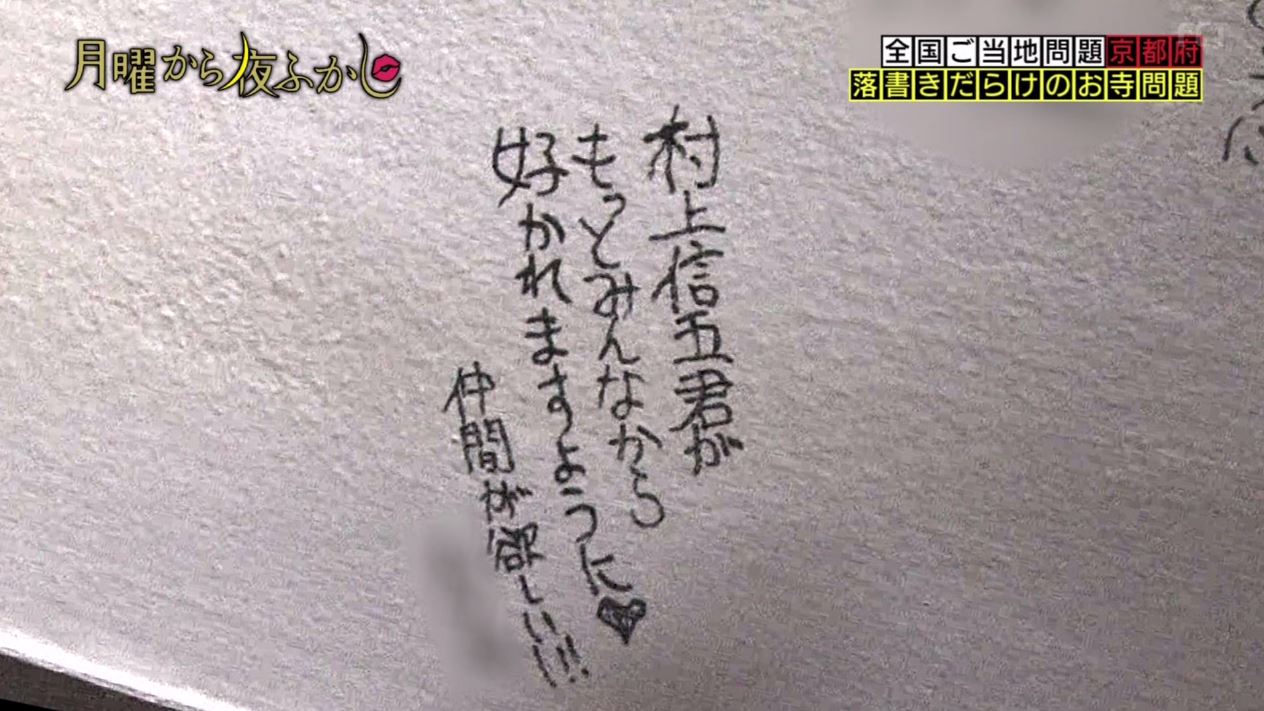 月曜から夜ふかし
全国ご当地問題京都府
落書きだらけのお寺問題
村上信五君が
もっとみんなから
好かれますように♥
仲間が欲しい!!!